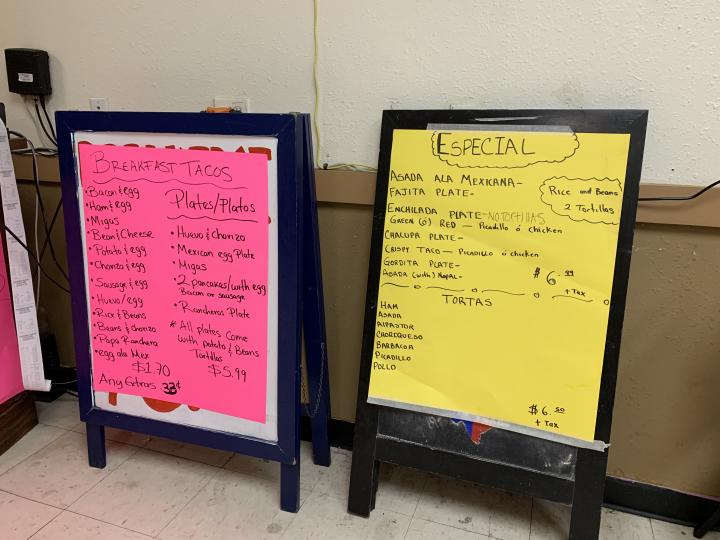 BREAKFAST TACOS
• Bacon & egg
• Ham & egg
• Migas
• Bean & Cheese
• Potato & egg
• Chorizo & egg
• Sausage & egg
• Huevo/egg
• Rice & Beans
• Beans & chorizo
• Papa Ranchera
• egg ala Mex
$1.70
Any Extras 33¢
Plates/Platos
• Huevo & Chorizo
• Mexican egg Plate
• Migas
• 2 pancakes/with egg
Bacon or sausage
• Rancheros Plate
* All plates come
with potato & Beans
Tortillas
$5.99
ESPECIAL
ASADA ALA MEXICANA-
FAJITA PLATE-
Rice and Beans
2 Tortillas
ENCHILADA PLATE-NO TORTILLAS
GREEN (Ó) RED — Picadillo ó chicken
CHALUPA PLATE-
CRISPY TACO — PICADILLO Ó CHICKEN
GORDITA PLATE-
ASADA (with) NOPAL-
$6.99
+ TAX
TORTAS
HAM
ASADA
AlPASTOR
CHORIQUESO
BARBACOA
PICADILLO
POLLO
$6.50
+ TAX